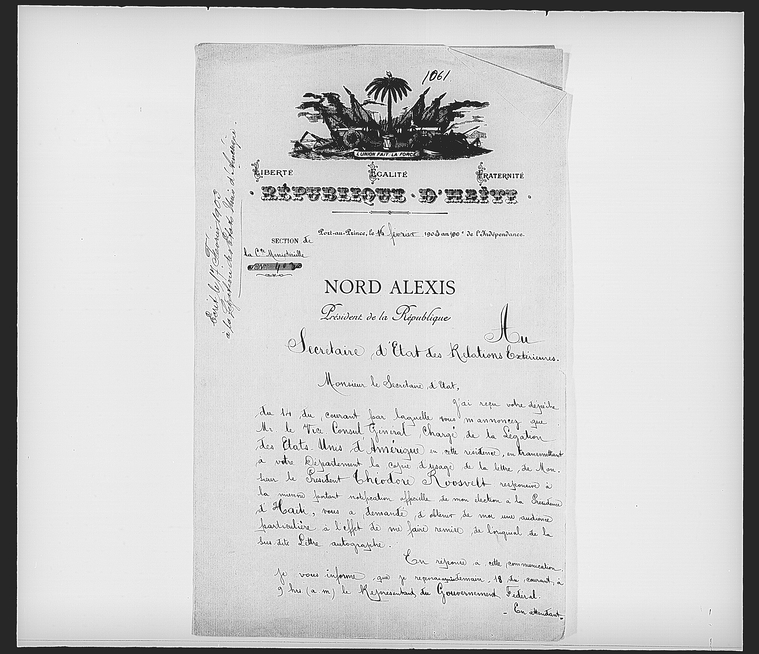 1061
L'UNION FAIT LA FORCE
LIBERTÉ ÉGALITÉ FRATERNITÉ
RÉPUBLIQUE D'HAÏTI
Port-au-Prince, le février 1903 an 100e de l'Indépendance.
SECTION de
la Cce Ministérielle
NORD ALEXIS
Président de la République
Au
Secrétaire d'Etat des Relations Extérieures.
Monsieur le Secrétaire d'Etat,
J'ai reçu votre dépêche
du 14 du courant par laquelle vous m'annoncez que
Mr le Vice Consul Général Chargé de la Légation
des Etats Unis d'Amérique en cette résidence, en transmettant
à votre Département la copie d'usage de la lettre de Mon-
sieur le Président Théodore Roosvelt responsive à
la mienne portant notification officielle de mon élection à la Présidence
d'Haïti, vous a demandé d'obtenir de moi une audience
particulière à l'effet de me faire remise de l'original de la
sus-dite Lettre autographe.
En réponse à cette communication,
je vous informe que je recevrai demain, 18 du courant, à
9 hres (a m) le Représentant du Gouvernement Fédéral.
- En attendant -
Ecrit le 17 Février 1903
à la Légation des Etats Unis d'Amérique.